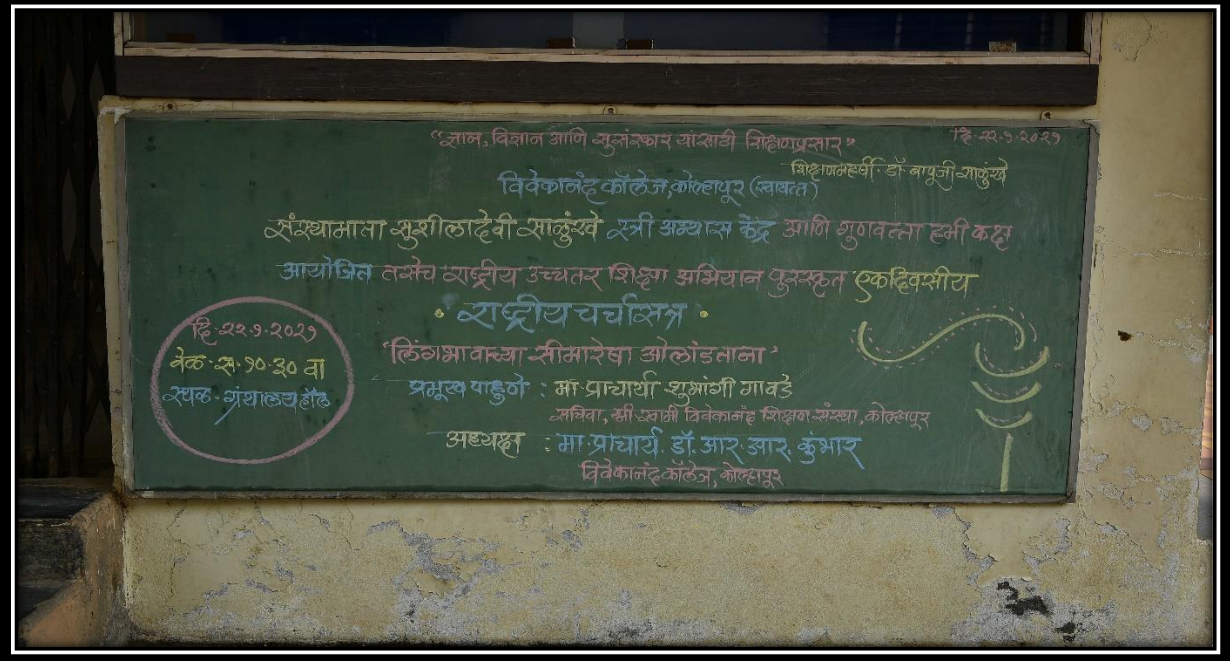 "ज्ञान, विज्ञान आणि सुसंस्कार यांसाठी शिक्षणप्रसार"
दि-२२-१-२०२१
शिक्षणमहर्षी-डॉ-बापूजी साळुंखे
विवेकानंद कॉलेज, कोल्हापूर (स्वायत्त)
संस्थामाता सुशीलादेवी साळुंखे स्त्री अभ्यास केंद्र आणि गुणवत्ता हमी कक्ष
आयोजित तसेच राष्ट्रीय उच्चतर शिक्षा अभियान पुरस्कृत एकदिवसीय
• राष्ट्रीय चर्चासत्र •
'लिंगभावाच्या सीमारेषा ओलांडताना'
दि-२२-१-२०२१
वेळ-स-१०-३० वा
स्थळ-ग्रंथालय हॉल
प्रमुख पाहुणे : मा-प्राचार्या-शुभांगी गावडे
सचिवा, श्री.स्वामी विवेकानंद शिक्षण संस्था, कोल्हापूर
अध्यक्ष : मा.प्राचार्य. डॉ. आर. आर. कुंभार
विवेकानंद कॉलेज, कोल्हापूर